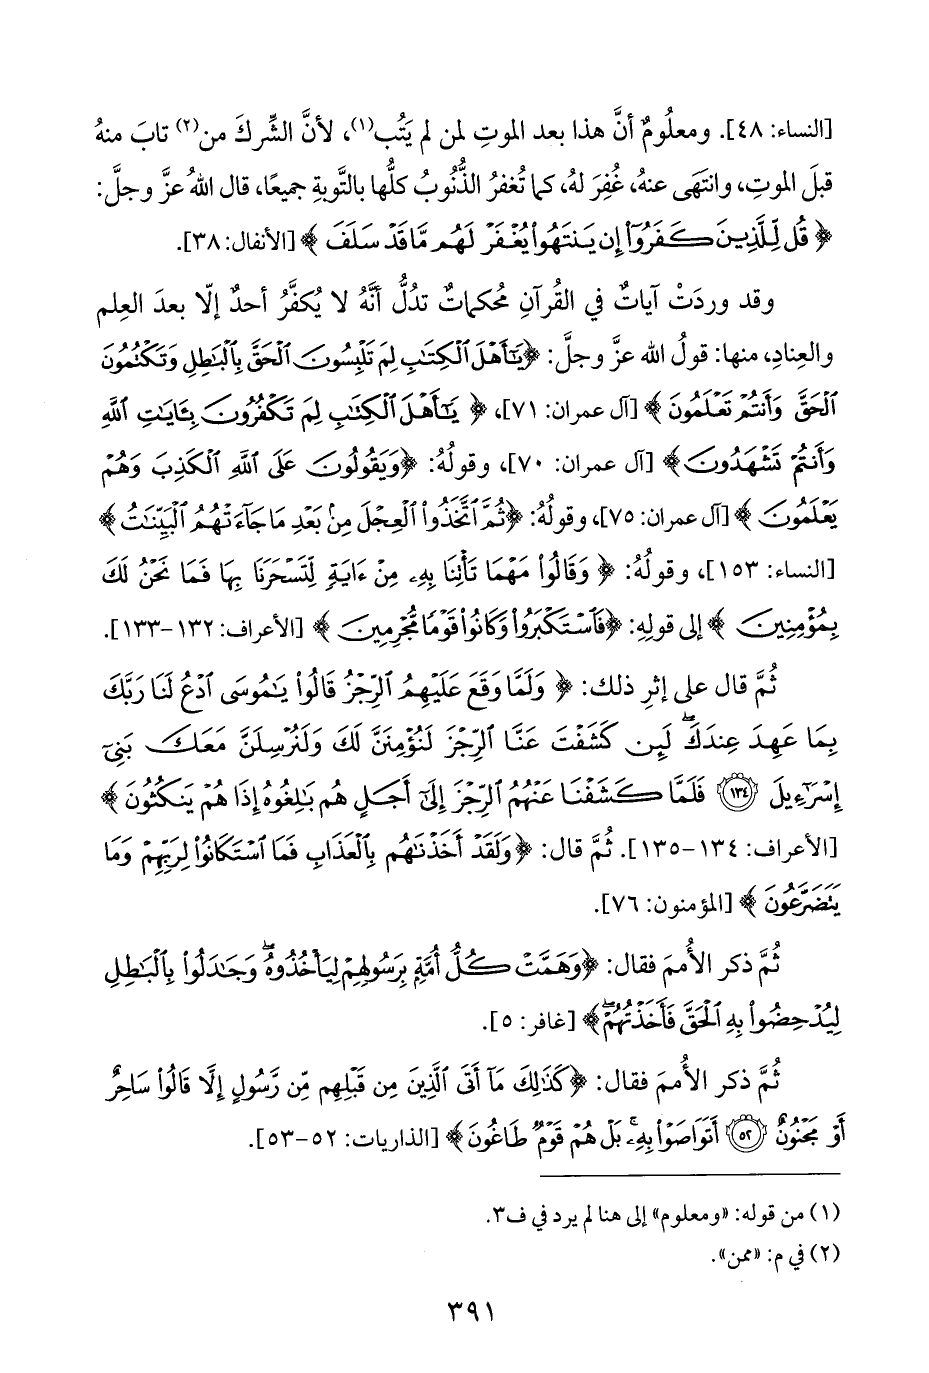 [النساء: ٤٨]. ومعلُومٌ أنَّ هذا بعد الموتِ لمن لم يَتُب(١)، لأنَّ الشِّركَ من(٢) تابَ منهُ
قبلَ الموتِ، وانتَهَى عنهُ، غُفِرَ لهُ، كما تُغفرُ الذُّنُوبُ كلُّها بالتَّوبةِ جميعًا، قال اللهُ عزَّ وجلَّ:
﴿قُل لِّلَّذِينَ كَفَرُوٓاْ إِن يَنتَهُواْ يُغْفَرْ لَهُم مَّا قَدْ سَلَفَ﴾ [الأنفال: ٣٨].
وقد وردَتْ آياتٌ في القُرآنِ مُحكماتٌ تدُلُّ أنَّهُ لا يُكفَّرُ أحدٌ إلّا بعدَ العِلم
والعِنادِ، منها: قولُ الله عزَّ وجلَّ: ﴿يَٰٓأَهْلَ ٱلْكِتَٰبِ لِمَ تَلْبِسُونَ ٱلْحَقَّ بِٱلْبَٰطِلِ وَتَكْتُمُونَ
ٱلْحَقَّ وَأَنتُمْ تَعْلَمُونَ﴾ [آل عمران: ٧١]، ﴿يَٰٓأَهْلَ ٱلْكِتَٰبِ لِمَ تَكْفُرُونَ بِـَٔايَٰتِ ٱللَّهِ
وَأَنتُمْ تَشْهَدُونَ﴾ [آل عمران: ٧٠]، وقولُهُ: ﴿وَيَقُولُونَ عَلَى ٱللَّهِ ٱلْكَذِبَ وَهُمْ
يَعْلَمُونَ﴾ [آل عمران: ٧٥]، وقولُهُ: ﴿ثُمَّ ٱتَّخَذُواْ ٱلْعِجْلَ مِنۢ بَعْدِ مَا جَآءَتْهُمُ ٱلْبَيِّنَٰتُ﴾
[النساء: ١٥٣]، وقولُهُ: ﴿وَقَالُواْ مَهْمَا تَأْتِنَا بِهِۦ مِنْ ءَايَةٍ لِّتَسْحَرَنَا بِهَا فَمَا نَحْنُ لَكَ
بِمُؤْمِنِينَ﴾ إلى قولِهِ: ﴿فَٱسْتَكْبَرُواْ وَكَانُواْ قَوْمًا مُّجْرِمِينَ﴾ [الأعراف: ١٣٢-١٣٣].
ثُمَّ قال على إثرِ ذلك: ﴿وَلَمَّا وَقَعَ عَلَيْهِمُ ٱلرِّجْزُ قَالُواْ يَٰمُوسَى ٱدْعُ لَنَا رَبَّكَ
بِمَا عَهِدَ عِندَكَ ۖ لَئِن كَشَفْتَ عَنَّا ٱلرِّجْزَ لَنُؤْمِنَنَّ لَكَ وَلَنُرْسِلَنَّ مَعَكَ بَنِىٓ
إِسْرَٰٓءِيلَ ﴿١٣٤﴾ فَلَمَّا كَشَفْنَا عَنْهُمُ ٱلرِّجْزَ إِلَىٰٓ أَجَلٍ هُم بَٰلِغُوهُ إِذَا هُمْ يَنكُثُونَ﴾
[الأعراف: ١٣٤-١٣٥]. ثُمَّ قال: ﴿وَلَقَدْ أَخَذْنَٰهُم بِٱلْعَذَابِ فَمَا ٱسْتَكَانُواْ لِرَبِّهِمْ وَمَا
يَتَضَرَّعُونَ﴾ [المؤمنون: ٧٦].
ثُمَّ ذكر الأُممَ فقال: ﴿وَهَمَّتْ كُلُّ أُمَّةٍۭ بِرَسُولِهِمْ لِيَأْخُذُوهُ ۖ وَجَٰدَلُواْ بِٱلْبَٰطِلِ
لِيُدْحِضُواْ بِهِ ٱلْحَقَّ فَأَخَذْتُهُمْ ۖ﴾ [غافر: ٥].
ثُمَّ ذكر الأُممَ فقال: ﴿كَذَٰلِكَ مَآ أَتَى ٱلَّذِينَ مِن قَبْلِهِم مِّن رَّسُولٍ إِلَّا قَالُواْ سَاحِرٌ
أَوْ مَجْنُونٌ ﴿٥٢﴾ أَتَوَاصَوْاْ بِهِۦ ۚ بَلْ هُمْ قَوْمٌ طَاغُونَ﴾ [الذاريات: ٥٢-٥٣].
(١) من قوله: «ومعلوم» إلى هنا لم يرد في ف٣.
(٢) في م: «ممن».
٣٩١